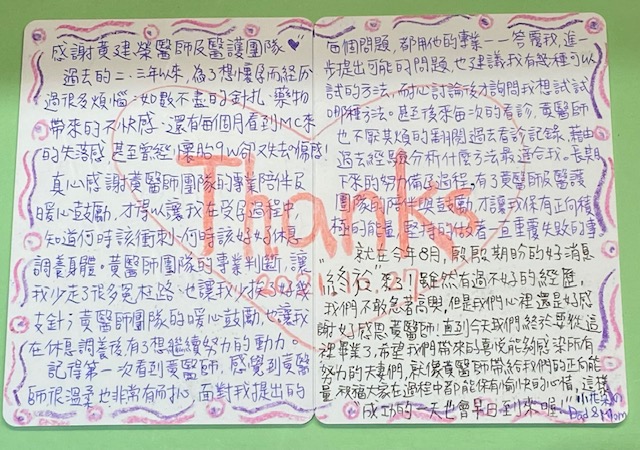 感謝黃建榮醫師及醫護團隊
過去的二、三年以來,為了想懷孕而經歷
過很多煩惱:如數不盡的針扎、藥物
帶來的不快感、還有每個月看到MC來
的失落感,甚至曾經懷胎9W卻又失去的傷感!
真心感謝黃醫師團隊的專業陪伴及
暖心鼓勵,才得以讓我在受的過程中,
知道何時該衝刺、何時該好好休息、
調養身體。黃醫師團隊的專業判斷,讓
我少走了很多冤枉路,也讓我少挨了好幾
支針;黃醫師團隊的暖心鼓勵,也讓我
在休息調養後,有了想繼續努力的動力。
記得第一次看到黃醫師,感覺到黃醫
師很溫柔也非常有耐心,面對我提出的
每個問題,都用他的專業一一答覆我,進一
步提出可能的問題,也建議我有幾種可以
試的方法,耐心討論後才詢問我想試試
哪種方法。甚至後來每次的看診,黃醫師
也不厭其煩的翻閱過去看診記錄,藉由
過去經驗分析什麼方法最適合我。長期
下來的努力備孕過程,有了黃醫師及醫護
團隊的陪伴與鼓勵,才讓我保有正向積
極的能量,堅持的做著一直重覆失敗的事
就在今年8月,殷殷期盼的好消息
"終於"來了!雖然有過不好的經歷,
我們不敢急著高興,但是我們心裡還是好感
謝、好感恩黃醫師!直到今天我們終於要從這
裡畢業了,希望我們帶來的喜悅能夠感染所有
努力的夫妻們,就像黃醫師帶給我們的正向能
量,祝福大家在過程中都能保有愉快的心情,這樣
"成功的一天也會早日到來喔!"
Dad & Mom
Thanks